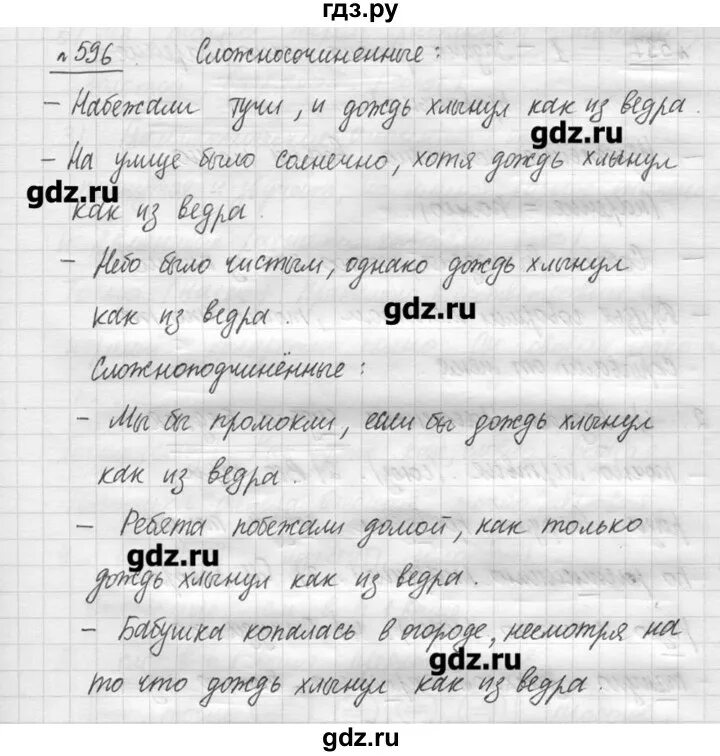 гдз.ру
№596 Сложносочиненные:
– Набежали тучи, и дождь хлынул как из ведра.
gdz.ru
– На улице было солнечно, хотя дождь хлынул
gdz.ru
как из ведра.
– Небо было чистым, однако дождь хлынул
как из ведра.
gdz.ru
Сложноподчинённые:
– Мы бы промокли, если бы дождь хлынул
как из ведра.
– Ребята побежали домой, как только
gdz.ru
дождь хлынул как из ведра.
– Бабушка копалась в огороде, несмотря на
gdz.ru
то что дождь хлынул как из ведра.
gdz.ru